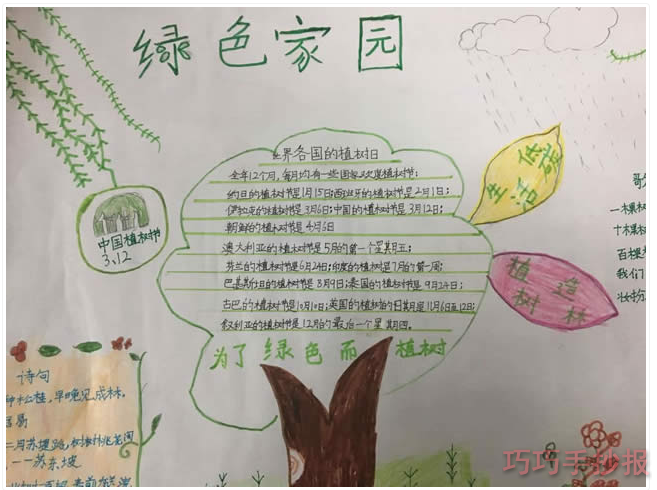 绿色家园
世界各国的植树日
全年12个月,每月均有一些国家欢度植树节:
约旦的植树节是1月15日;西班牙的植树节是2月1日;
伊拉克的植树节是3月6日;中国的植树节是3月12日;
朝鲜的植树节是4月6日
澳大利亚的植树节是5月的第一个星期五;
芬兰的植树节是6月24日;印度的植树节是7月的第一周;
巴基斯坦的植树节是8月9日;泰国的植树节是9月24日;
古巴的植树节是10月10日;美国的植树节的日期是11月6至12日;
叙利亚的植树节是12月的最后一个星期四。
为了绿色而植树
中国植树节
3.12
低碳
生活
植造
树林
一棵树
十棵树
百棵
我们
诗句
种松桂,早晚见成林。
易
二月苏堤路,
--苏东坡
巧巧手抄报